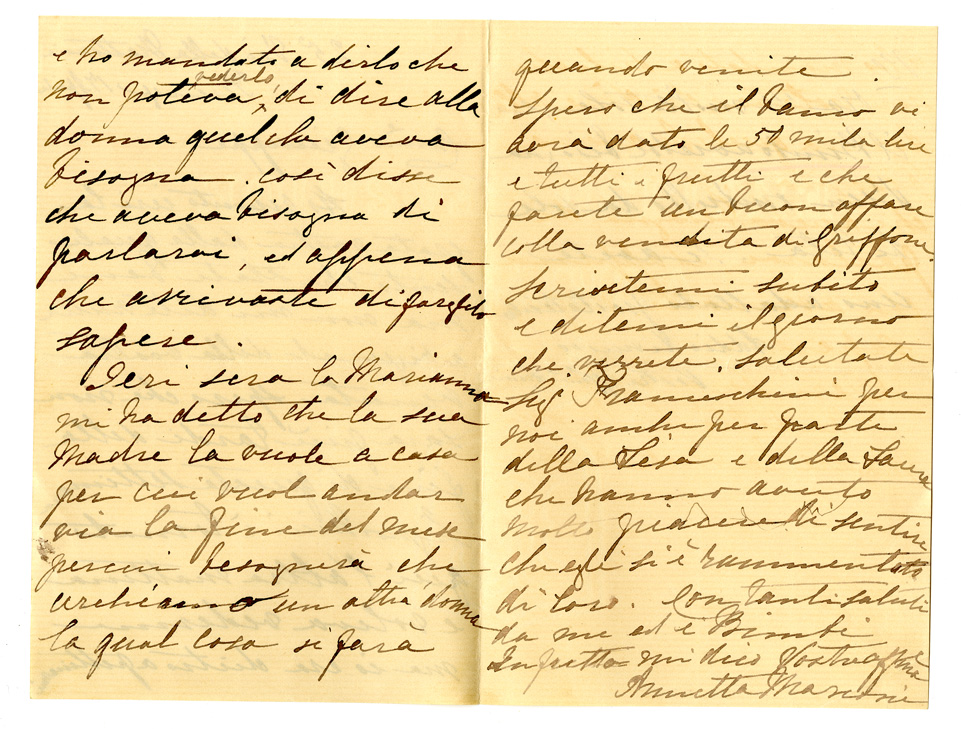 e ho mandato a dirlo che
non poteva vederlo, di dire alla
donna quel che aveva
bisogna. così disse
che aveva bisogna di
parlarvi, ed appena
che arrivaste di farglito
sapere.
Ieri sera la Marianna
mi ha detto che la sua
Madre la vuole a casa
per cui vuol andar
via la fine del mese
percui besognerà che
cerchiamo un altra donna
la qual cosa si farà
quando venite.
Spero che il vi
avrà dato le 50 mila lire
e tutti i frutti e che
farete un buon affare
colla vendita di Griffone.
Scrivetemi subito
e ditemi il giorno
che verrete. salutate
Sig Franceschini per
noi anche per parte
della Lisa e della Laura
che hanno avuto
molto piacere di sentire
che egli si è rammentato
di loro. Con tanti saluti
da me ed i Bimbi
In fretta mi dico Vostra affma
Annetta